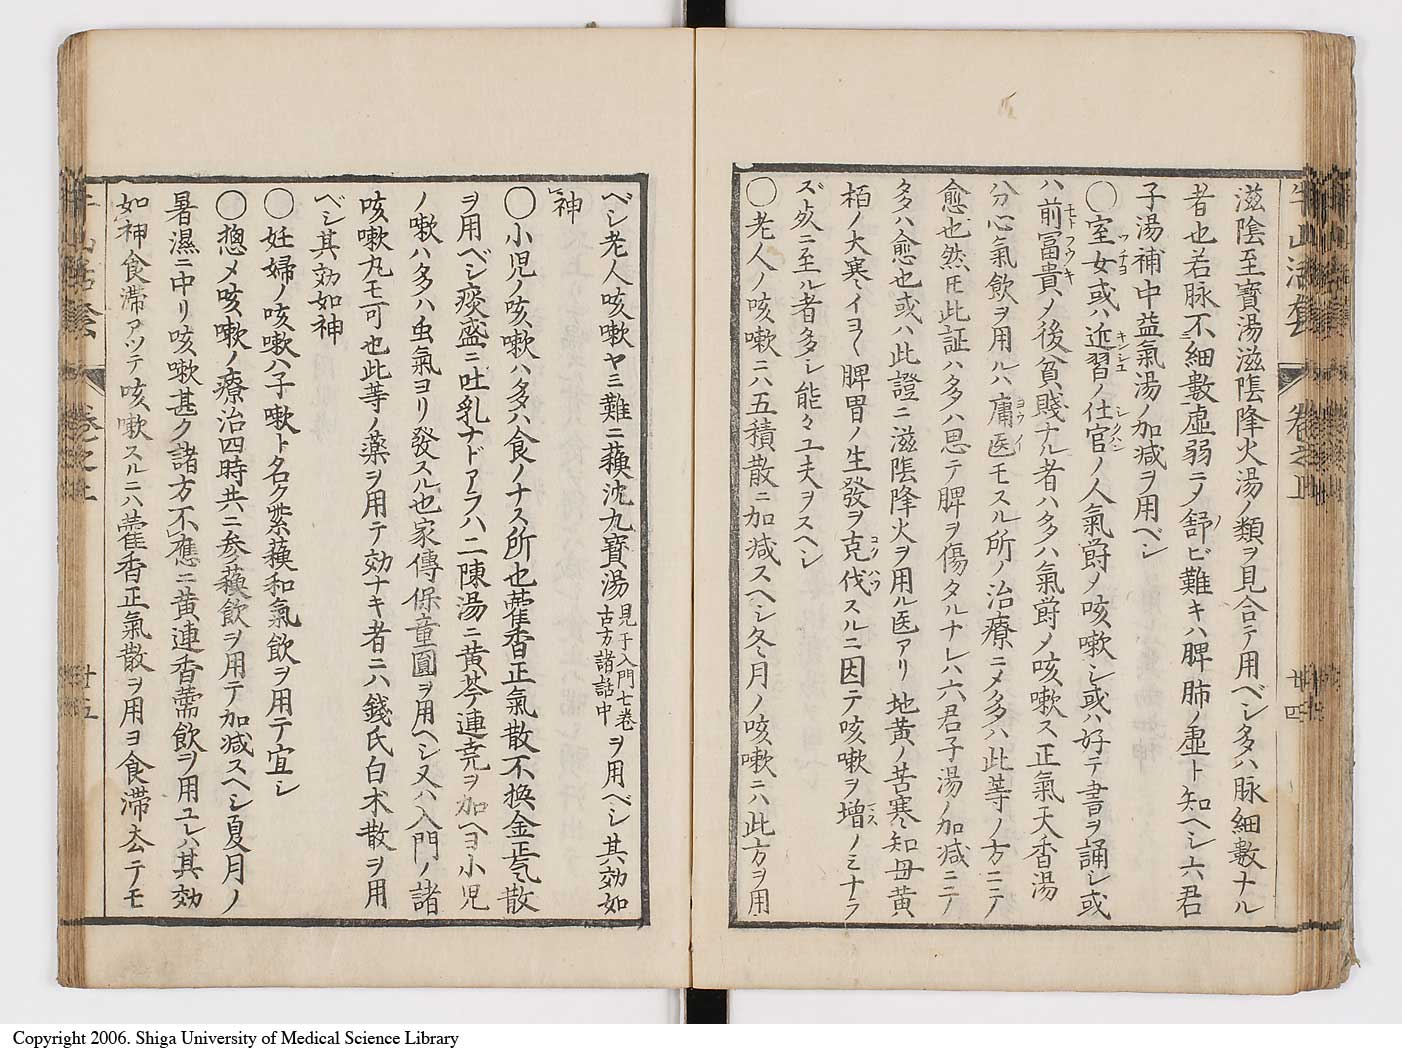 滋陰至寳湯滋陰降火湯ノ類ヲ見合テ用ベシ多ハ脉細數ナル
者也若脉不細數虚弱ニノ舒ビ難キハ脾肺ノ虚ト知ヘシ六君
子湯補中益氣湯ノ加减ヲ用ベシ
○室女或ハ近習ノ仕官ノ人氣欝ノ咳嗽シ或ハ好テ書ヲ誦シ或
ハ前冨貴ノ後貧賤ナル者ハ多ハ氣欝ノ咳嗽ス正氣天香湯
分心氣飲ヲ用ルハ庸医モスル所ノ治療ニ乄多ハ此等ノ方ニテ
愈也然𪜈此証ハ多ハ思テ脾ヲ傷タルナレハ六君子湯ノ加减ニテ
多ハ愈也或ハ此證ニ滋陰降火ヲ用ル医アリ地黄ノ苦寒知母黄
栢ノ大寒イヨ〱脾胃ノ生發ヲ克伐スルニ因テ咳嗽ヲ増ノミナラ
ズ死ニ至ル者多シ能々工夫ヲスヘシ
○老人ノ咳嗽ニハ五積散ニ加减スヘシ冬月ノ咳嗽ニハ此方ヲ用
牛山活套 卷之上 廿四
ベシ老人咳嗽ヤミ難ニ蘓沈九寳湯見于入門七卷古方諸話中ヲ用ベシ其効如
神
○小児ノ咳嗽ハ多ハ食ノナス所也藿香正氣散不換金正氣散
ヲ用ベシ痰盛ニ吐乳ナドアラハ二陳湯ニ黄芩連壳ヲ加ヘヨ小児
ノ嗽ハ多ハ虫氣ヨリ發スル也家傳保童圓ヲ用ヘシ又ハ入門ノ諸
咳嗽丸モ可也此等ノ藥ヲ用テ効ナキ者ニハ錢氏白术散ヲ用
ベシ其効如神
○妊婦ノ咳嗽ハ子嗽ト名ク紫蘓和氣飲ヲ用テ宜シ
○摠乄咳嗽ノ療治四時共ニ参蘓飲ヲ用テ加减スヘシ夏月ノ
暑濕ニ中リ咳嗽甚ク諸方不應ニ黄連香薷飲ヲ用ユレハ其効
如神食滞アツテ咳嗽スルニハ藿香正氣散ヲ用ヨ食滞去テモ
卷之上 廿五